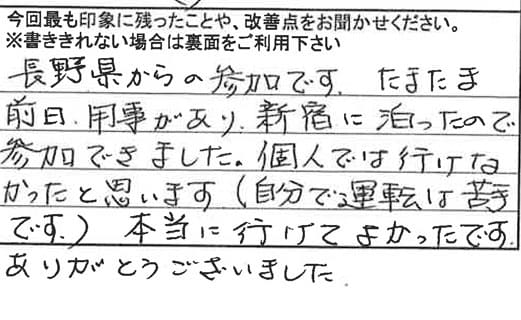 今回最も印象に残ったことや、改善点をお聞かせください。
※書ききれない場合は裏面をご利用下さい
長野県からの参加です。たまたま
前日、用事があり、新宿に泊ったので
参加できました。個人では行けな
かったと思います（自分で運転は苦手
です。）本当に行けてよかったです。
ありがとうございました